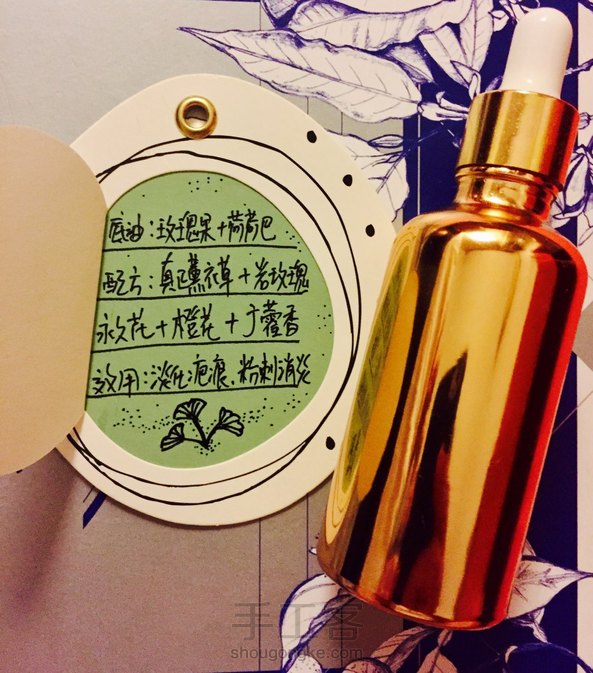 底油：玫瑰果+荷荷巴
配方：真正薰衣草+岩玫瑰
永久花+橙花+广藿香
效用：淡化疤痕、粉刺消炎
手工客
shougongke.com